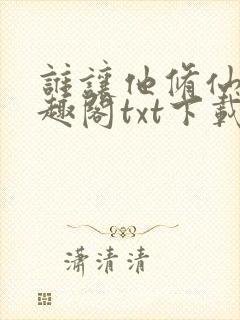 誰讓他脩仙
趣閣txt下載
瀟清清